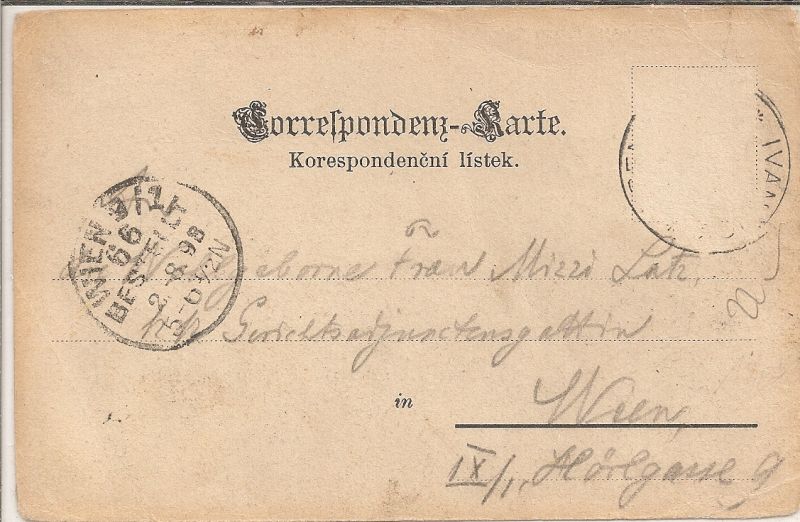 Correspondenz-Karte.
Korespondenční lístek.
IVAN
WIEN 9/1
66
BESTELLT
2. 8. 98
N
Wohlgeborne Frau Mizzi Latz,
k.k. Gerichtsadjunctensgattin
in Wien,
IX/1, Hörlgasse 9